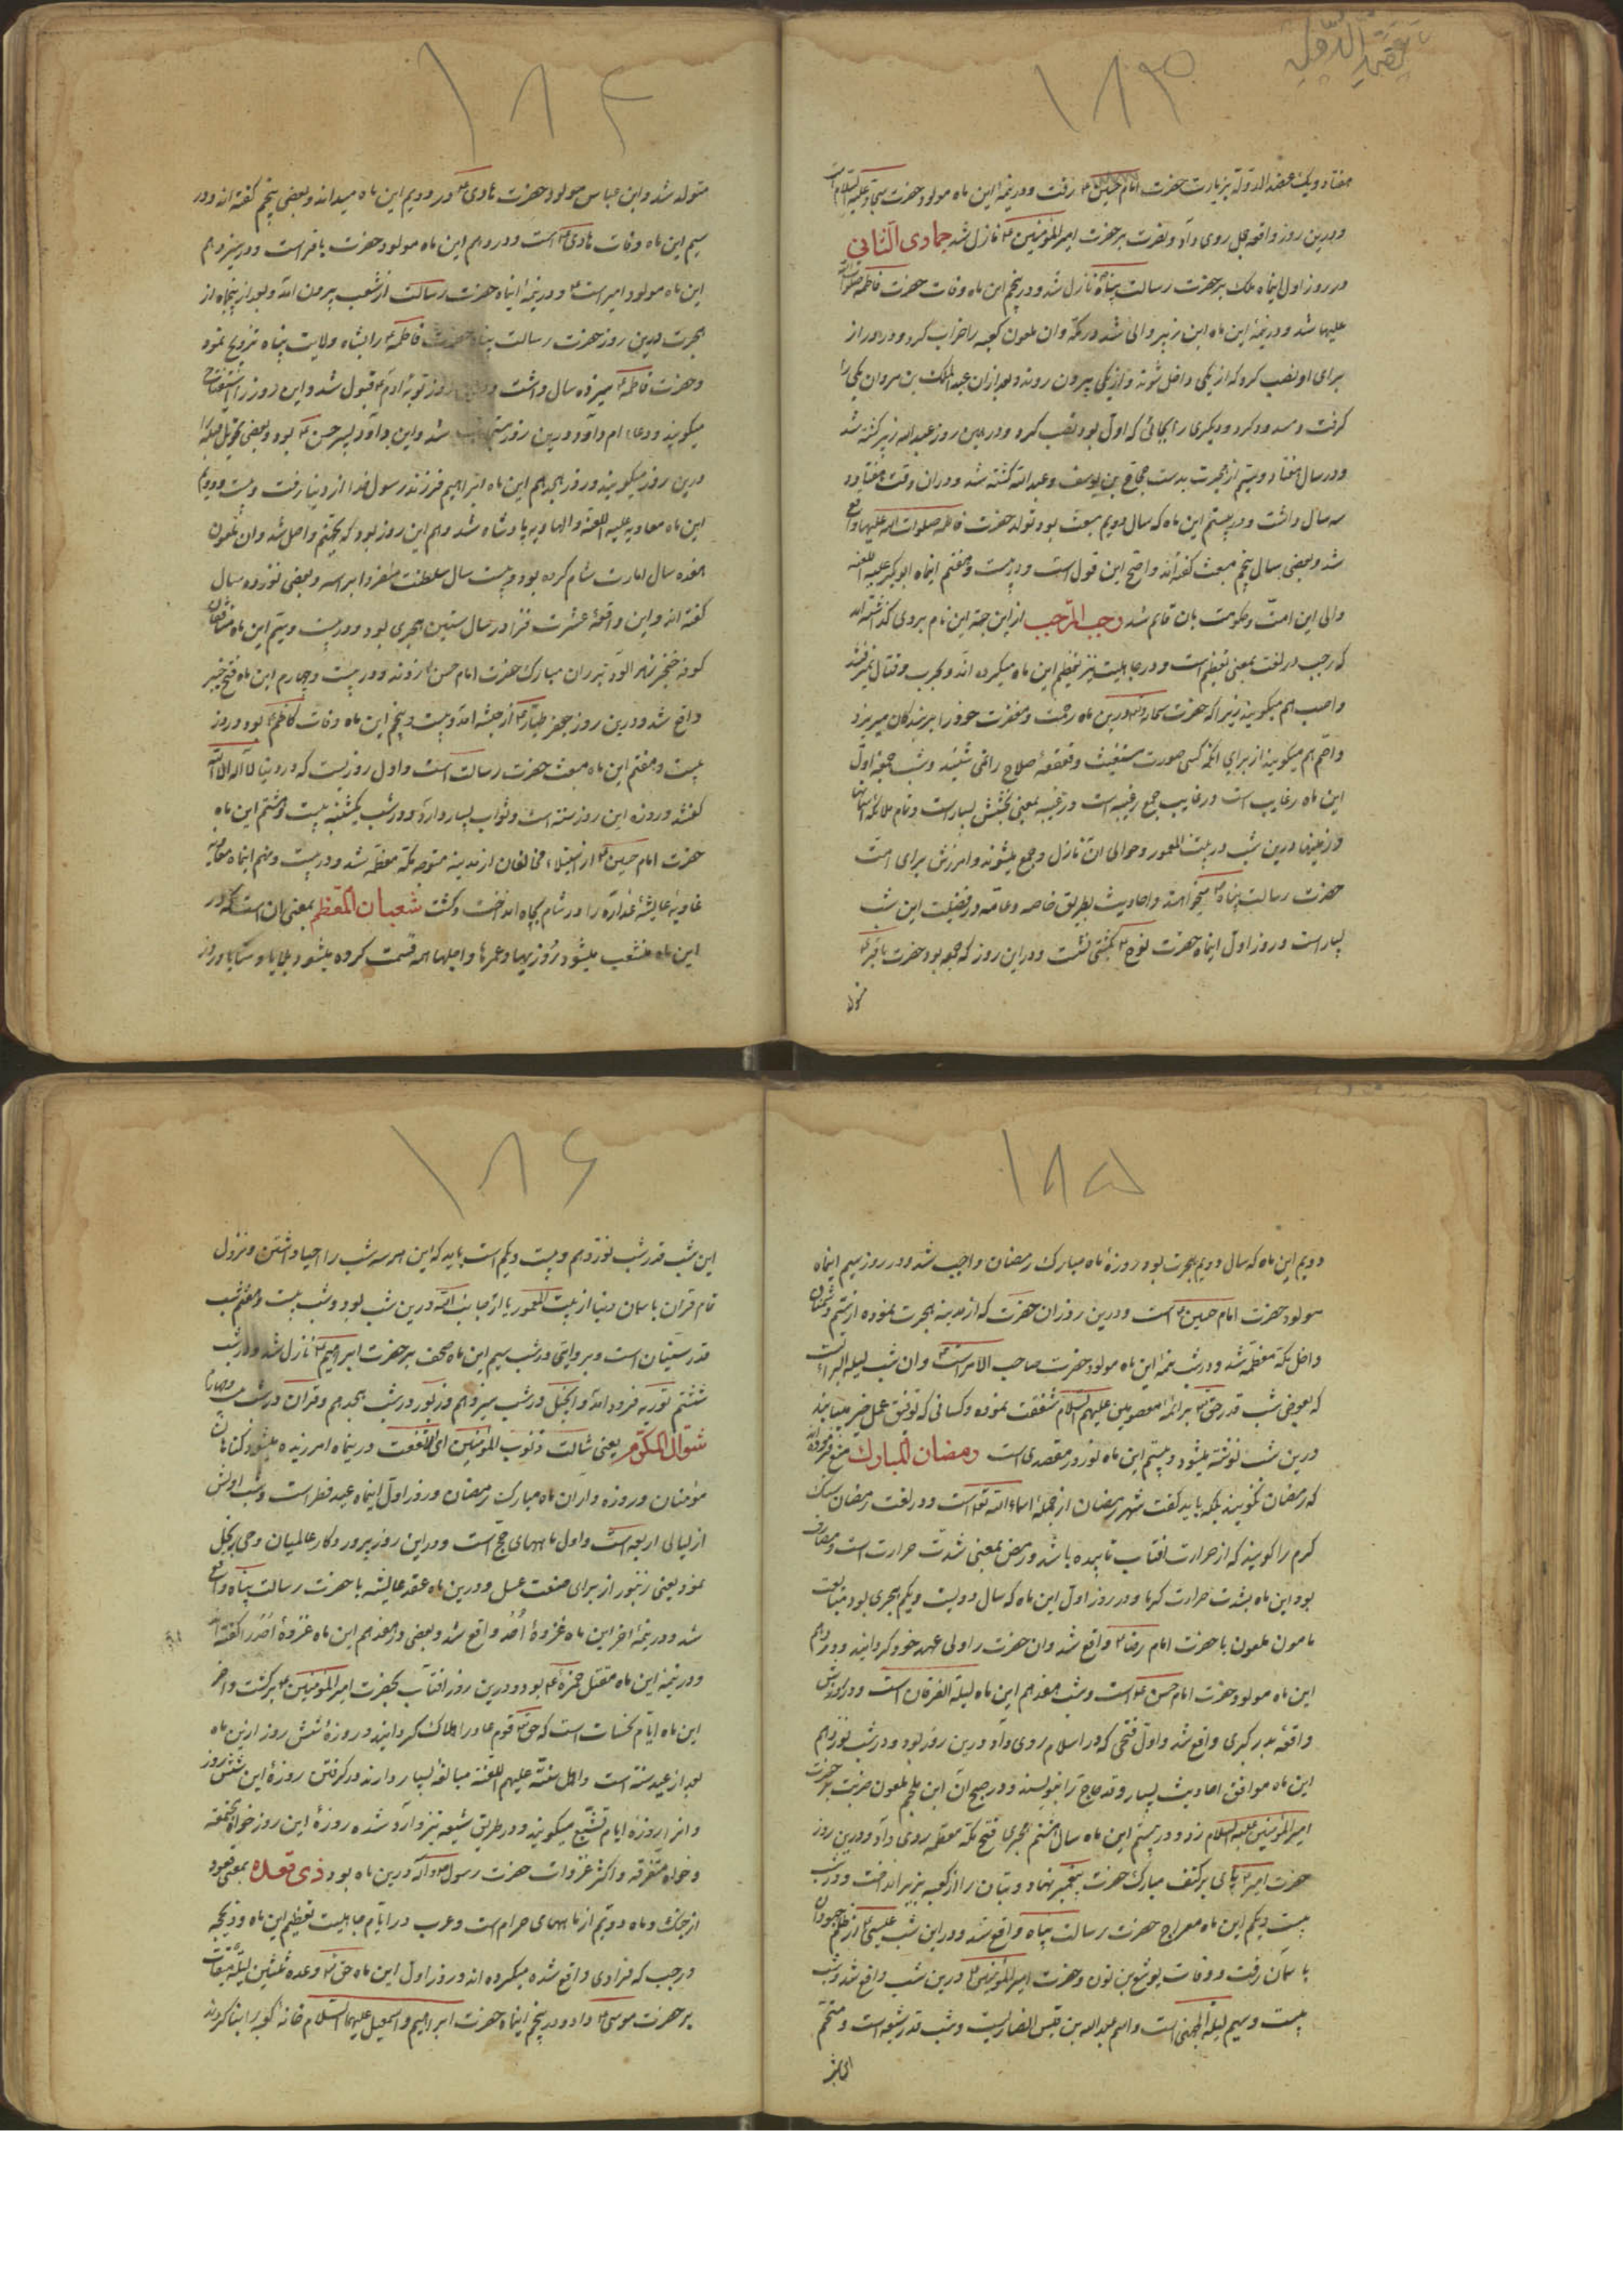 عضد الدوله
۱۸۳
هفتاد ویک عضد الدوله بزیارت حضرت امام حسین ع رفت ودر نیمهٔ این ماه مولود حضرت سجاد علیه السلام است
ودرین روز واقعه جمل روی داد ونصرت بر حضرت امیر المؤمنین ع نازل شد جمادی الثانی
در روز اول اینماه ملک بر حضرت رسالت پناه نازل شد ودر پنجم این ماه وفات حضرت فاطمه صلوات الله
علیها شد ودر نیمهٔ این ماه ابن زبیر والی شد در مکه وان ملعون کعبه را خراب کرد ودو در از
برای او نصب کرد که از یکی داخل شوند واز یکی بیرون روند وبعد از ان عبد الملک بن مروان یکی را
گرفت ومسدود کرد ودیگری را بجائی که اول بود نصب کرد ودر همین روز عبد الله زبیر کشته شد
ودر سال هفتاد وسیم از هجرت بدست حجاج بن یوسف وعبد الله کشته شد ودران وقت هفتاد و
سه سال داشت ودر بیستم این ماه که سال دویم مبعث بود تولد حضرت فاطمه صلوات الله علیها واقع
شد وبعضی سال پنجم مبعث گفته اند واصح این قول است ودر بیست وهفتم اینماه ابوبکر علیه اللعنه
والی این امت وحکومت بان قایم شد رجب المرجب از این جهة این نام بروی گذاشته اند
که رجب در لغت بمعنی تعظیم است ودر جاهلیت نیز تعظیم این ماه میکرده اند وبحرب وقتال نمیرفتند
واصب هم میگویند زیرا که حضرت سبحانه وتعالی درین ماه رحمت ومغفرت خود را بر بندگان میریزد
واصم هم میگویند از برای انکه کسی صورت مستغیث وقعقعهٔ سلاح را نمی شنید وشب جمعهٔ اول
این ماه رغایب است ورغایب جمع رغیبه است ورغیبه بمعنی بخشش بسیار است وتمام ملائکه آسمانها
وزمینها درین شب در بیت المعمور وحوالی ان نازل وجمع میشوند وامرزش برای امت
حضرت رسالت پناه ص میخواهند واحادیث بطریق خاصه وعامه در فضیلت این شب
بسیار است ودر روز اول اینماه حضرت نوح ع بکشتی نشست ودر این روز که جمعه بود حضرت باقر ع
متولد
۱۸۴
متولد شد وابن عباس مولود حضرت هادی ع در دویم این ماه میداند وبعضی پنجم گفته اند ودر
سیم این ماه وفات هادی ع است ودر دهم این ماه مولود حضرت باقر است ودر سیزدهم
این ماه مولود امیر است ع ودر نیمهٔ اینماه حضرت رسالت از شعب بیرون آمد وبعد از پنجاه از
هجرت درین روز حضرت رسالت پناه حضرت فاطمه ع را بشاه ولایت پناه تزویج نمود
وحضرت فاطمه ع سیزده سال داشت ودرین روز توبهٔ ادم ع قبول شد واین روز را استفتاح
میگویند ودعاء ام داود درین روز مستجاب شد واین داود پسر حسن ع بود وبعضی تحویل قبله را
درین روز میگویند ودر روز هجدهم این ماه ابراهیم فرزند رسول خدا از دنیا رفت وبیست ودویم
این ماه معاویه علیه اللعنه والهاویه پادشاه شد وهم این روز بود که بجهنم واصل شد وان ملعون
هفده سال امارت شام کرده بود وبیست سال سلطنت
گفته اند واین واقعهٔ عشرت فزا در سال ستین هجری بود ودر بیست وسیم این ماه منافقان
کوفه خنجر زهر آلود بر ران مبارک حضرت امام حسن ع زدند ودر بیست وچهارم این ماه فتح خیبر
واقع شد ودرین روز جعفر طیار از حبشه آمد وبیست وپنجم این ماه وفات کاظم ع بود ودر روز
بیست وهفتم این ماه مبعث حضرت رسالت است واول روزیست که در دنیا لا اله الا الله
گفتند وروزه این روز سنت است وثواب بسیار دارد ودر شب یکشنبه بیست وهشتم این ماه
حضرت امام حسین ع از استیلاء مخالفان از مدینه متوجه مکه معظمه شد ودر بیست ونهم اینماه معاویه
غاویه عایشهٔ غداره را در شام بچاه انداخت وکشت شعبان المعظم بمعنی ان است که در
این ماه منشعب میشود روزیها وعمرها واجلها همه قسمت کرده میشود وبلایا ومنایا ودر روز
۱۸۵
دویم این ماه که سال دویم هجرت بود روزهٔ ماه مبارک رمضان واجب شد ودر روز سیم اینماه
مولود حضرت امام حسین ع است ودرین روز ان حضرت که از مدینه هجرت نموده از ستم دشمنان
داخل مکه معظمه شد ودر شب نیمهٔ این ماه مولود حضرت صاحب الامر است ع وان شب لیلة البرائة است
که بعوض شب قدر حق تعالی بر ائمهٔ معصومین علیهم السلام شفقت نموده وکسانی که توفیق عمل خیر مییابند
درین شب نوشته میشود وبیستم این ماه نوروز معتضدی است رمضان المبارک منع فرموده اند
که رمضان نگویند بلکه باید گفت شهر رمضان از جملهٔ اسماء الله تعالی است ودر لغت رمضان سنگ
گرم را گویند که از حرارت افتاب تابیده باشد ورمض بمعنی شدت حرارت است ومصادف
بود این ماه بشدت حرارت گرما ودر روز اول این ماه که سال دویست ویکم هجری بود متابعت
مامون ملعون با حضرت امام رضا ع واقع شد وان حضرت را ولی عهد خود گردانید ودر دهم
این ماه مولود حضرت امام حسن ع است وشب هفدهم این ماه لیلة الفرقان است ودر روزش
واقعهٔ بدر کبری واقع شد واول فتحی که در اسلام روی داد درین روز بود ودر شب نوزدهم
این ماه موافق احادیث بسیار وقد حاج را بنویسند ودر صبح ان ابن ملجم ملعون ضربت بر حضرت
امیر المؤمنین علیه السلام زد ودر بیستم این ماه سال هشتم هجری فتح مکه معظمه روی داد ودرین روز
حضرت امیر ع پای بر کتف مبارک حضرت پیغمبر نهاد وبتان را از کعبه بزیر انداخت ودر شب
بیست ویکم این ماه معراج حضرت رسالت پناه واقع شد ودر این شب عیسی ع از ظلم جهودان
باسمان رفت ووفات یوشع بن نون وحضرت امیر المؤمنین ع درین شب واقع شد وشب
بیست وسیم لیلة الجهنی است واسم عبد الله بن انیس انصاریست وشب قدر شیعه است
۱۸۶
این شب قدر شب نوزدهم وبیست ویکم است باید که این هر سه شب را احیا داشتن ونزول
تمام قران باسمان دنیا از بیت المعمور درین شب بود وشب بیست وهفتم شب
قدر سنیان است وبروایتی در شب سیم این ماه صحف بر حضرت ابراهیم ع نازل شد ودر شب
ششم توریه فرود آمد وانجیل در شب سیزدهم وزبور در شب هجدهم وقران در شب
شوال المکرم یعنی شالت ذنوب المؤمنین ای ارتفعت در ینماه امرزیده میشود گناهان
مؤمنان وروزه داران ماه مبارک رمضان وروز اول اینماه عید فطر است وشب اولش
از لیالی اربعه است واول ماههای حج است ودر این روز پروردگار عالمیان وحی بر نحل
نمود یعنی زنبور از برای صنعت عسل ودرین ماه عقد عایشه با حضرت رسالت پناه واقع
شد ودر نیمهٔ اخر این ماه غزوهٔ احد واقع شد وبعضی در هفدهم این ماه غزوهٔ احد را گفته اند
ودر نیمهٔ این ماه مقتل حمزه ع بود ودرین روز افتاب بحضرت امیر المؤمنین ع برگشت واخر
این ماه ایام نحسات است که حق تعالی قوم عاد را هلاک گردانید وروزهٔ شش روز ازین ماه
بعد از عید سنت است واهل سنت علیهم اللعنه مبالغهٔ بسیار دارند در گرفتن روزهٔ این شش روز
وانرا روزهٔ ایام تشییع میگویند ودر طریق شیعه نیز وارد شده روزهٔ این روز خواه مجتمعه
وخواه متفرقه واکثر غزوات حضرت رسول ص وآله درین ماه بود ذی قعده بمعنی قعود
از جنگ وماه دویم از ماههای حرام است وعرب در ایام جاهلیت تعظیم این ماه وذیحجه
ورجب که فرادی واقع شده میکرده اند ودر روز اول این ماه حق تعالی وعده ثلثین لیله میقات
بر حضرت موسی ع داد ودر پنجم اینماه حضرت ابراهیم واسمعیل علیهما السلام خانهٔ کعبه را بنا کردند